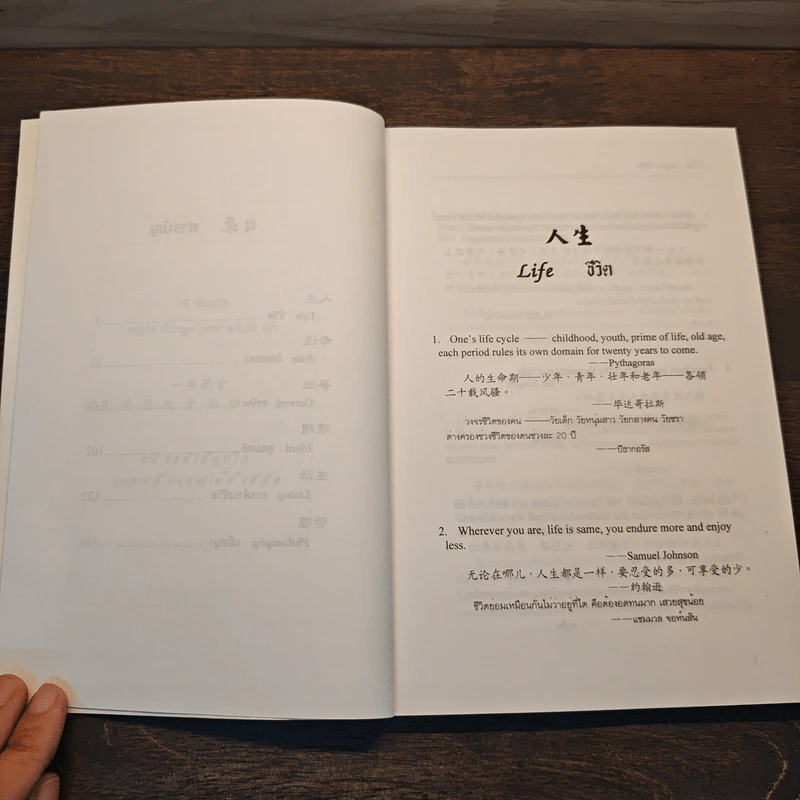 人生
Life ชีวิต
1. One's life cycle —— childhood, youth, prime of life, old age,
each period rules its own domain for twenty years to come.
——Pythagoras
人的生命期——少年·青年·壮年和老年——各领
二十载风骚。
——毕达哥拉斯
วงจรชีวิตของคน ——วัยเด็ก วัยหนุ่มสาว วัยกลางคน วัยชรา
ต่างครองช่วงชีวิตของตนช่วงละ 20 ปี
——ปีธากอรัส
2. Wherever you are, life is same, you endure more and enjoy
less.
——Samuel Johnson
无论在哪儿,人生都是一样,要忍受的多,可享受的少。
——约翰逊
ชีวิตย่อมเหมือนกันไม่ว่าอยู่ที่ใด คือต้องอดทนมาก เสวยสุขน้อย
——แซมมวล จอห์นสัน